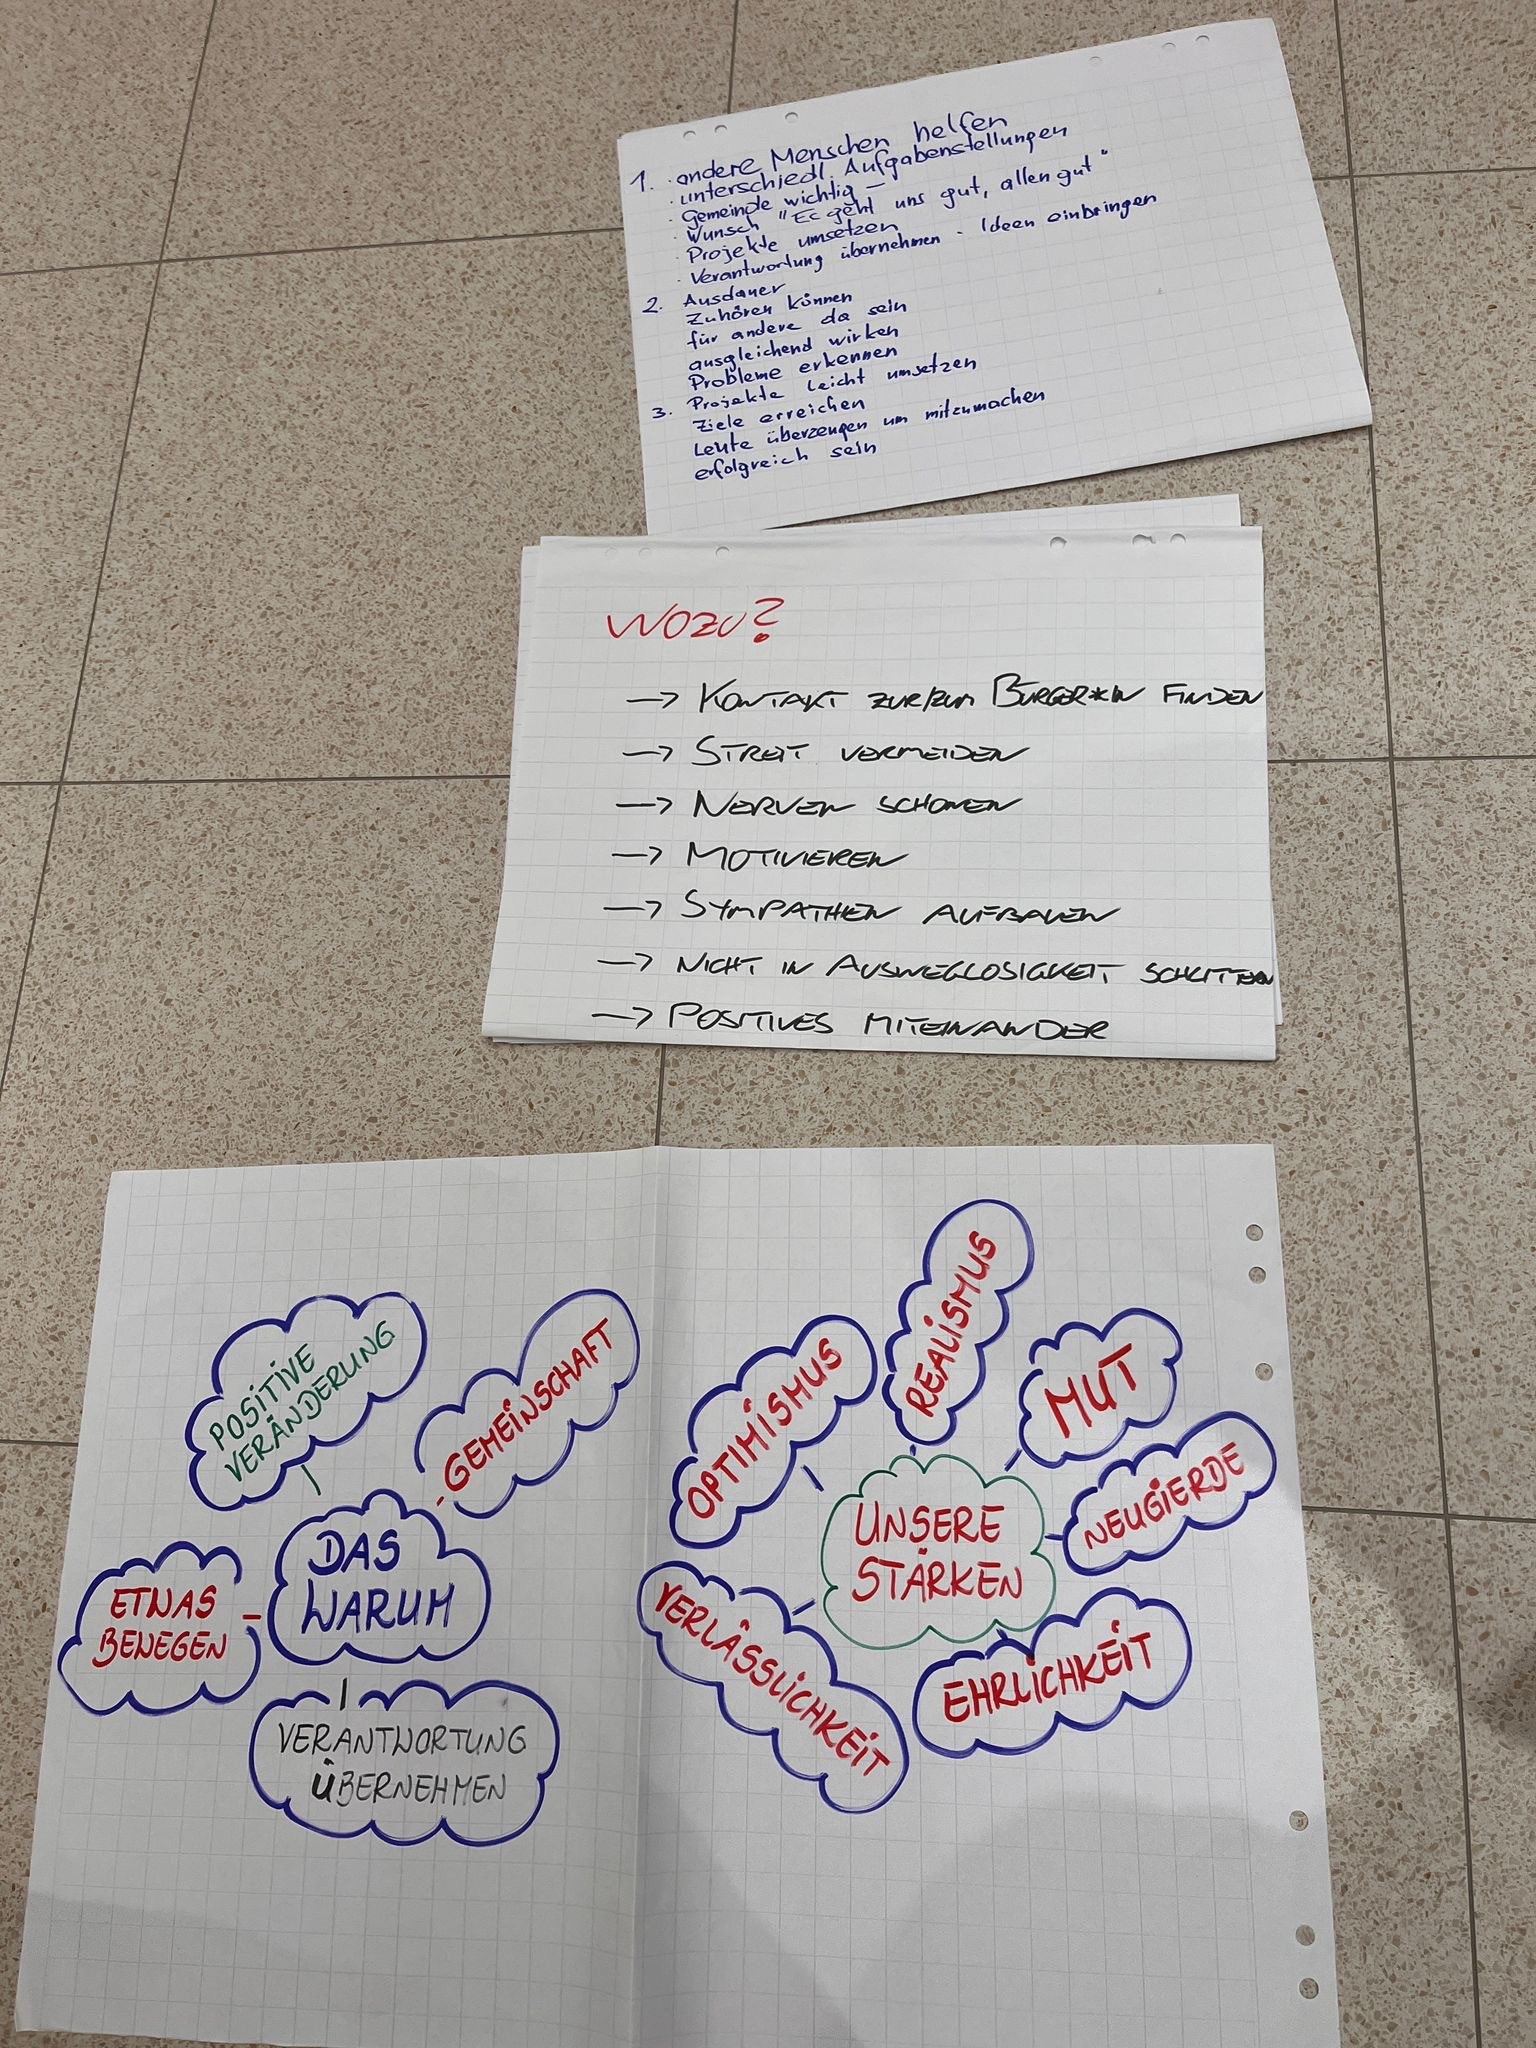 1. · andere Menschen helfen
· unterschiedl. Aufgabenstellungen
· Gemeinde wichtig –
· Wunsch "Es geht uns gut, allen gut"
· Projekte umsetzen
· Verantwortung übernehmen - Ideen einbringen
2. Ausdauer
Zuhören können
für andere da sein
ausgleichend wirken
Probleme erkennen
3. Projekte leicht umsetzen
Ziele erreichen
Leute überzeugen um mitzumachen
erfolgreich sein
WOZU?
→ KONTAKT ZUR/ZUM BÜRGER*IN FINDEN
→ STREIT VERMEIDEN
→ NERVEN SCHONEN
→ MOTIVIEREN
→ SYMPATHIEN AUFBAUEN
→ NICHT IN AUSWEGLOSIGKEIT
→ POSITIVES MITEINANDER
POSITIVE
VERÄNDERUNG
GEMEINSCHAFT
DAS
WARUM
ETWAS
BEWEGEN
VERANTWORTUNG
ÜBERNEHMEN
REALISMUS
OPTIMISMUS
MUT
NEUGIERDE
UNSERE
STÄRKEN
VERLÄSSLICHKEIT
EHRLICHKEIT